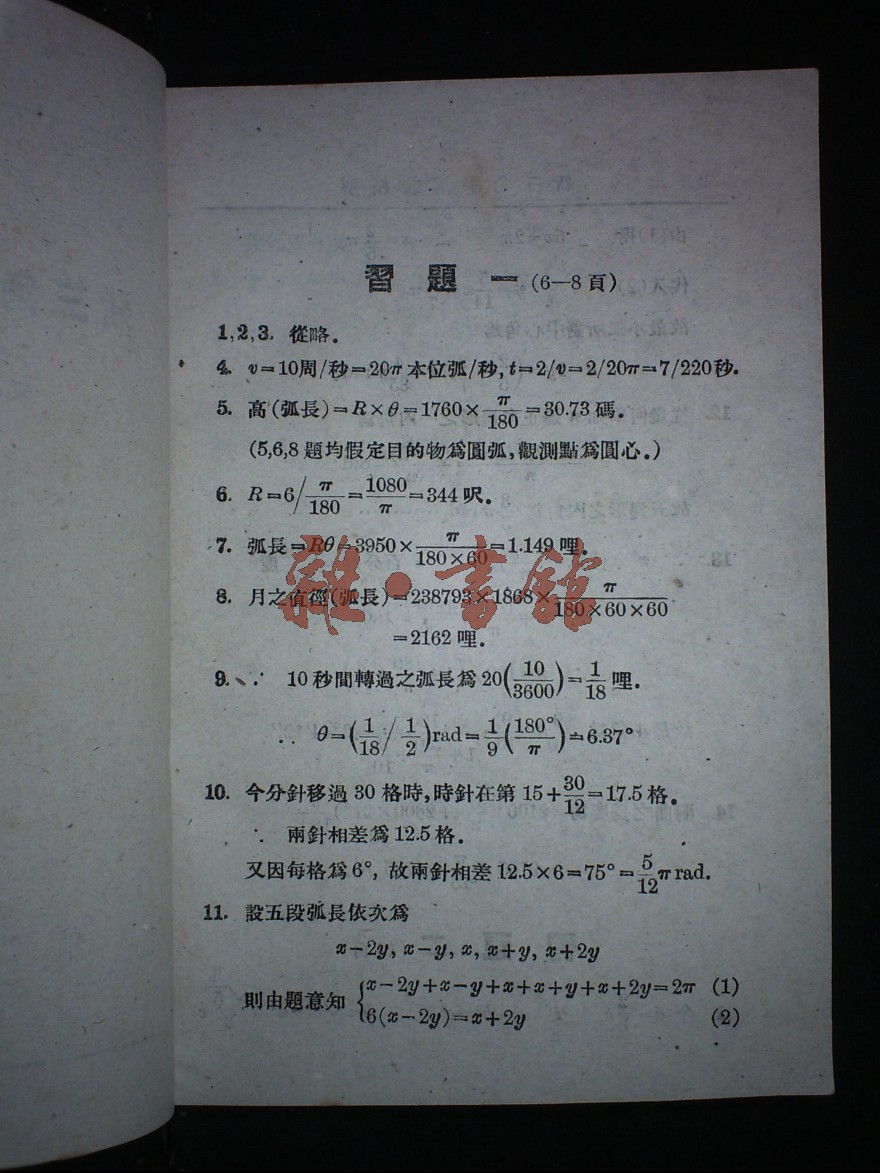 習題一(6—8頁)
1,2,3. 從略.
4. v=10周/秒=20π本位弧/秒, t=2/v=2/20π=7/220秒.
5. 高(弧長)=R×θ=1760×π/180=30.73碼.
(5,6,8題均假定目的物爲圓弧,觀測點爲圓心.)
6. R=6/(π/180)=1080/π=344呎.
7. 弧長=Rθ=3950×π/(180×60)=1.149哩.
8. 月之直徑(弧長)=238793×1868×π/(180×60×60)
=2162哩.
9. ∵ 10秒間轉過之弧長爲20(10/3600)=1/18哩.
∴ θ=(1/18/1/2)rad=1/9(180°/π)=6.37°
10. 今分針移過30格時,時針在第15+30/12=17.5格.
∴ 兩針相差爲12.5格.
又因每格爲6°, 故兩針相差12.5×6=75°=5/12πrad.
11. 設五段弧長依次爲
x−2y, x−y, x, x+y, x+2y
則由題意知 {x−2y+x−y+x+x+y+x+2y=2π (1)
6(x−2y)=x+2y (2)
雜·書館